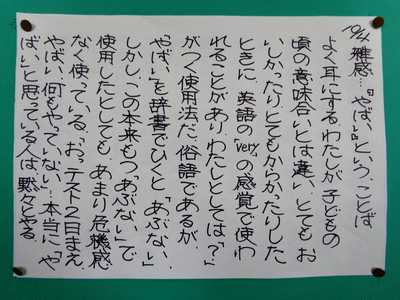 10/4 雑感…『やばい』という、ことば
よく耳にするわたしが子どもの
頃の意味合いとは違い、とてもお
いしかったり、とてもからかったりした
ときに、英語の「very」の感覚で使わ
れることがあり、わたしとしては「？」
がつく使用法だ。俗語であるが、
「やばい」を辞書でひくと「あぶない」。
しかし、この本来もつ「あぶない」で
使用したとしても、あまり危機感
なく使っている。「おっ、テスト2日まえ、
やばい、何もやっていない…」本当に「や
ばい」と思っている人は、黙々とやる。